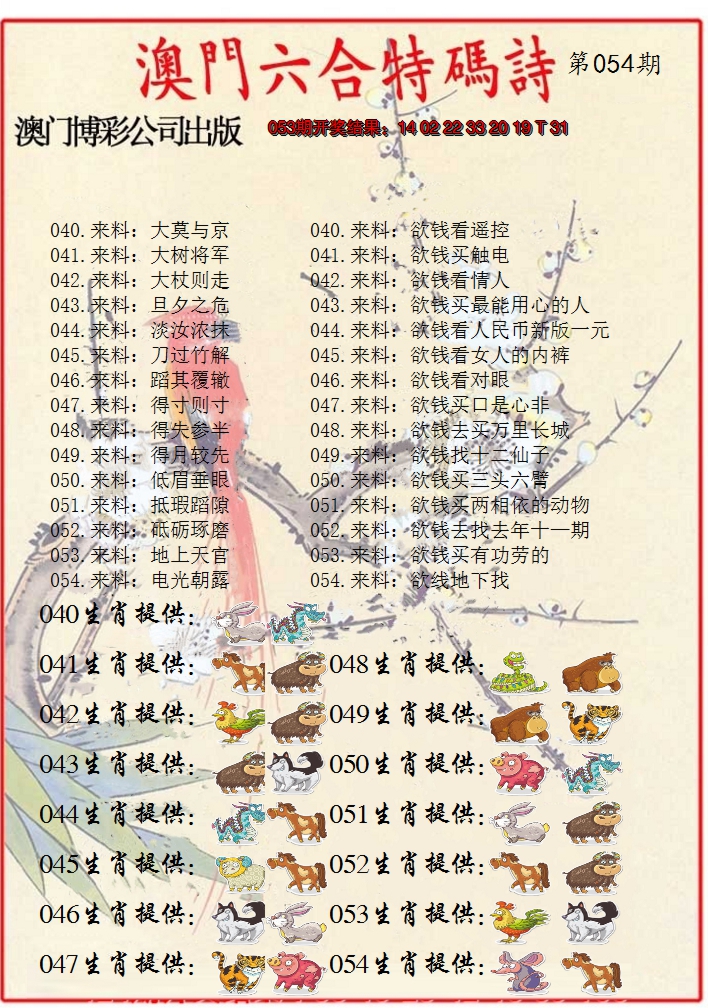 澳門六合特碼詩 第054期
澳门博彩公司出版 053期开奖结果：14 02 22 33 20 19 T 31
040.来料：大莫与京 040.来料：欲钱看遥控
041.来料：大树将军 041.来料：欲钱买触电
042.来料：大杖则走 042.来料：欲钱看情人
043.来料：旦夕之危 043.来料：欲钱买最能用心的人
044.来料：淡汝浓抹 044.来料：欲钱看人民币新版一元
045.来料：刀过竹解 045.来料：欲钱看女人的内裤
046.来料：蹈其覆辙 046.来料：欲钱看对眼
047.来料：得寸则寸 047.来料：欲钱买口是心非
048.来料：得失参半 048.来料：欲钱去买万里长城
049.来料：得月较先 049.来料：欲钱找十二仙子
050.来料：低眉垂眼 050.来料：欲钱买三头六臂
051.来料：抵瑕蹈隙 051.来料：欲钱买两相依的动物
052.来料：砥砺琢磨 052.来料：欲钱去找去年十一期
053.来料：地上天官 053.来料：欲钱买有功劳的
054.来料：电光朝露 054.来料：欲线地下找
040生肖提供：
041生肖提供： 048生肖提供：
042生肖提供： 049生肖提供：
043生肖提供： 050生肖提供：
044生肖提供： 051生肖提供：
045生肖提供： 052生肖提供：
046生肖提供： 053生肖提供：
047生肖提供： 054生肖提供：